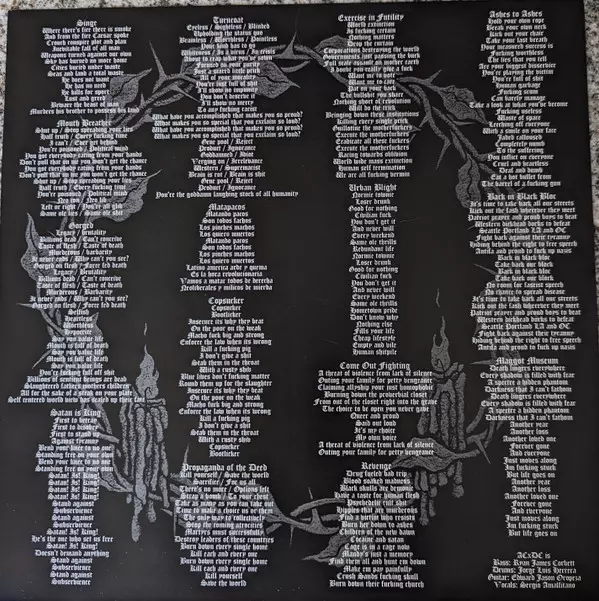 Singe
Where there's fire there is smoke
And from the fire Caesar spoke
Crooks conspire plot and plan
Inevitable fall of man
Weapons turned against our own
Sky has burned no more ozone
Cities buried under waste
Seas and land a total waste
He does not want
He has no need
He kills for sport
Lust and greed
Beware the beast of man
Murders his brother to possess his land
Mouth Breather
Shut up / Stop spreading your lies
Half truth / Every fucking time
I can't / Ever get behind
You're poisoned / Political mind
You got everything eating from your hands
Don't push shit on me you don't get the chance
You got everything eating from your hands
Don't push shit on me you don't get the chance
Shut up / Stop spreading your lies
Half truth / Every fucking time
You're poisoned / Political mind
Neo con / Neo lib
Left or right / You're all shit
Same ole lies / Same ole shit
Gorged
Legacy / Brutality
Billions dead / Can't conceive
Taste of flesh / Taste of death
Murderous / Barbarity
It never ends / Why can't you see?
Gorged on flesh / Force fed death
Legacy / Brutality
Billions dead / Can't conceive
Taste of flesh / Taste of death
Murderous / Barbarity
It never ends / Why can't you see?
Gorged on flesh / Force fed death
Selfish
Heartless
Worthless
Hypocrite
Say you value life
Mouth is full of death
Say you value life
Mouth is full of death
Say you value life
Your fucking full of shit
Billions of sentient beings are dead
Slaughtered fathers mothers children
All for the sake of a steak on your plate
Self centered world view helps back up their hate
Satan is King
First to betray
First to destroy
First to stand up
Against tyranny
Bend your knee to no one
Standing free on your own
Bend your knee to no one
Standing free on your own
Satan! Is! King!
Satan! Is! King!
Satan! Is! King!
Satan! Is! King!
Stand against
Subservience
Stand against
Subservience
Satan! Is! King!
He's the one who set us free
Satan! Is! King!
Doesn't demand anything
Stand against
Subservience
Stand against
Subservience
Turncoat
Eyeless / Sightless / Blinded
Upholding the status quo
Brainless / Worthless / Pointless
Your kind has to go
Venomous / In a virus / In crisis
Angst to trap what you've sown
Focused on your purity
Just a scared little prick
All of your nonsense
You're just full of shit
I'll show no empathy
You don't deserve it
I'll show no mercy
To any fucking racist
What have you accomplished that makes you so proud?
What makes you so special that you exclaim so loud?
What have you accomplished that makes you so proud?
What makes you so special that you exclaim so loud?
Gene pool / Reject
Product / Ignorance
Gobbamned / Idiot
Verging on / Irrelevance
Western / Supremacist
Brain is rot / Brain is shit
Gene pool / Reject
Product / Ignorance
You're the goddamn laughing stock of all humanity
Matapacos
Matando pacos
Son todos fachos
Los pinches machos
Los quiero muertos
Matando pacos
Son todos fachos
Los pinches machos
Los quiero muertos
Los quiero muertos
Latino america arde y quema
Es la hora revolucionaria
Vamos a matar todos de derecha
Neoliberales y milicos de mierda
Copsucker
Copsucker
Bootlicker
Insecure its why they beat
On the poor on the weak
Macho fuck big and strong
Enforce the law when its wrong
Kill a fucking pig
I don't give a shit
Stab them in the throat
With a rusty shiv
Blue lives don't fucking matter
Round them up for the slaughter
Insecure its why they beat
On the poor on the weak
Macho fuck big and strong
Enforce the law when its wrong
Kill a fucking pig
I don't give a shit
Stab them in the throat
With a rusty shiv
Copsucker
Copsucker
Bootlicker
Propaganda of the Deed
Kill yourself / Save the world
Sacrifice / For us all
There's no more / Options left
Strap a bomb / To your chest
Take as many as you can take out
Time to make a choice us or them
The only way to collectively
Stop the coming atrocities
Martyrs must successfully
Destroy leaders of these countries
Burn down every single home
Kill each and every one
Burn down every single home
Kill each and every one
Kill yourself
Save the world
Exercise in Futility
World extinction
Is fucking certain
Nothing matters
Drop the curtain
Corporations destroying the world
Governments just passing the buck
Full scale assault on mother earth
I doubt you really give a fuck
Want me to vote
Want me to care
Pat on your back
The bullshit you share
Nothing short of revolution
Will do the trick
Bringing down these institutions
Killing every single prick
Guillotine the motherfuckers
Execute the motherfuckers
Eradicate all these fuckers
Execute the motherfuckers
Racing toward oblivion
World wide mass extinction
Human self recreation
We are all fucking vermin
Urban Blight
Normie townie
Loser drunk
Good for nothing
Civilian fuck
You don't get it
And never will
Every weekend
Same ole thrills
Redundant life
Normie townie
Loser drunk
Good for nothing
Civilian fuck
You don't get it
And never will
Every weekend
Same ole thrills
Hometown pride
Don't know why
Nothing else
Fills your life
Cheap lifestyle
Empty and vile
Human shitpile
Come Out Fighting
A threat of violence from lack of silence
Outing your family for petty vengeance
Claiming allyship your just homophobic
Burning down the proverbial closet
From out of the closet right into the grave
The choice to be open you never gave
Queer and proud
Said out loud
It's my choice
My own voice
A threat of violence from lack of silence
Outing your family for petty vengeance
Revenge
Drug fueled bad trip
Blood soaked madness
Black skulls are demons
Have a taste for human flesh
Psychedelic cult shit
Hippies that are murderous
Find a warrior who resists
Burn her down to ashes
Children of the new dawn
Cocaine and satan
Cage in a rage now
Mandy's just a memory
Find them all and hunt em down
Make em pay painfully
Crush Sands fucking skull
Burn down their fucking church
Ashes to Ashes
Hold your own rope
Break your own neck
Kick out your chair
Take your last breath
Your measured success is
Fucking worthless
The lies that you tell
Are your biggest disservice
You're playing the victim
You're full of shit
Human garbage
Fucking scum
Can barely manage
Take a look at what you've become
Fucking useless
Waste of space
Leeching off everyone
With a smile on your face
Jaded calloused
Completely numb
To the suffering
You inflict on everyone
Cruel and heartless
Deaf and dumb
Eat a hot bullet from
The barrel of a fucking gun
Back in Black Bloc
It's time to take back all our streets
Kick out the fash wherever they meet
Patriot prayer and proud boys to beat
Western dickhead dorks to defeat
Seattle Portland LA and OC
Fight back against their tyranny
Hiding behind the right to free speech
Antifa and proud to fuck up nazis
Back in black bloc
Take back our block
Back in black bloc
Take back our block
No room for fascist speech
No chance to spread disease
It's time to take back all our streets
Kick out the fash wherever they meet
Patriot prayer and proud boys to beat
Western dickhead dorks to defeat
Seattle Portland LA and OC
Fight back against their tyranny
Hiding behind the right to free speech
Antifa and proud to fuck up nazis
Maggot Museum
Death lingers everywhere
Every shadow is filled with fear
A spectre a hidden phantom
Darkness that I can't fathom
Death lingers everywhere
Every shadow is filled with fear
A spectre a hidden phantom
Darkness that I can't fathom
Another year
Another loss
Another loved one
Forever gone
And everyone
Just moves along
Im fucking stuck
But life goes on
Another year
Another loss
Another loved one
Forever gone
And everyone
Just moves along
Im fucking stuck
But life goes on
ACxDC is
Bass: Ryan James Corbett
Drums: Jorge Luis Herrera
Guitar: Edward Jason Oropeza
Vocals: Sergio Amalfitano